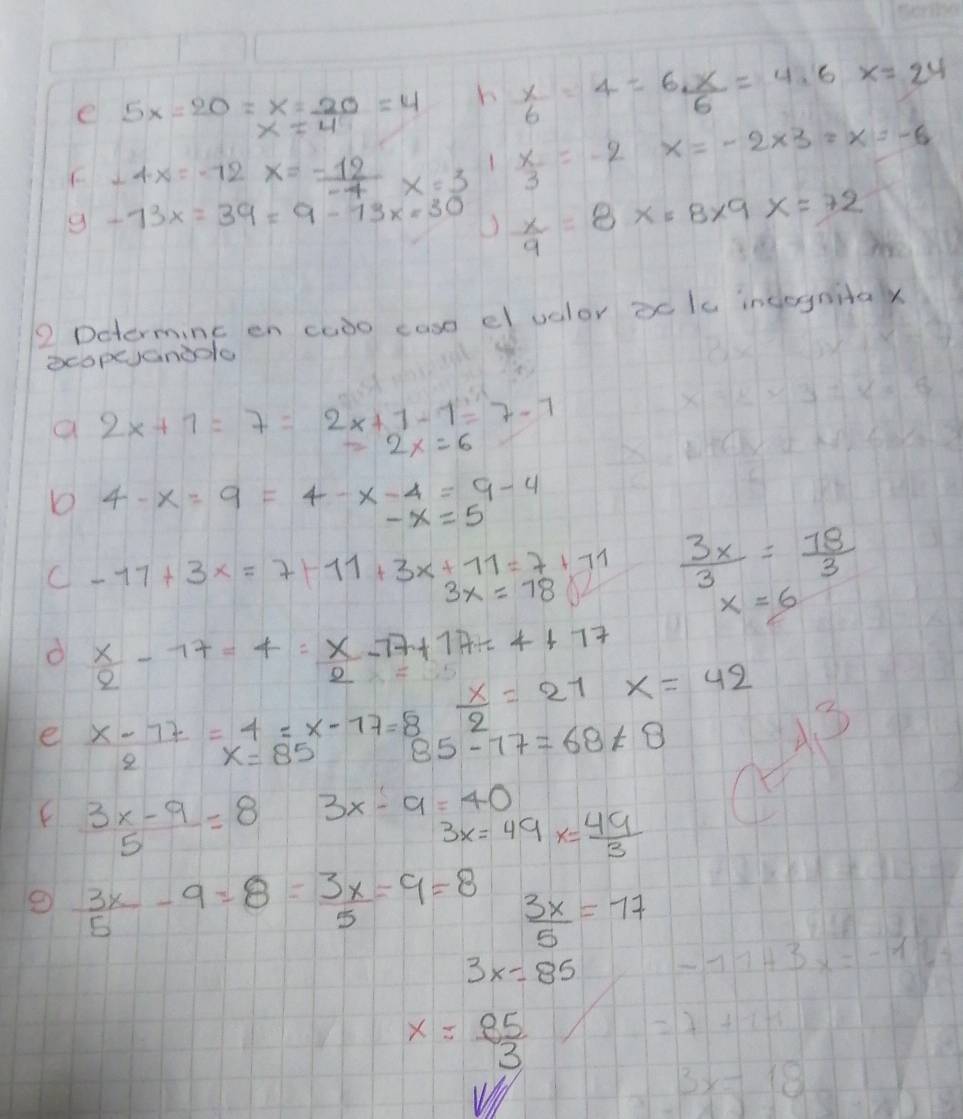 e 5x = 20 = x = 20/ = 4
x = 4
h x/6 = 4 = 6.x/6 = 4.6 x = 24
f -4x = -12 x = -12/-4 x = 3
i x/3 = -2 x = -2x3 = x = -6
g -13x = 39 = 9 - 13x = 30
j x/9 = 8 x = 8x9 x = 72
2 Determine en cado caso el valor de la incognita x
a 2x + 1 = 7 = 2x + 1 - 1 = 7 - 1
= 2x = 6
b 4 - x = 9 = 4 - x - 4 = 9 - 4
-x = 5
c -11 + 3x = 7 + 11 + 3x + 11 = 7 + 11
3x = 18
3x/3 = 18/3
x = 6
d x/2 - 17 = 4 = x/2 - 17 + 17 = 4 + 17
x/2 = 21 x = 42
e x - 17/2 = 4 = x - 17 = 8
x = 85 85 - 17 = 68 ≠ 8
f 3x - 9/5 = 8 3x - 9 = 40
3x = 49 x = 49/3
g 3x/5 - 9 = 8 = 3x/5 - 9 = 8
3x/5 = 17
3x = 85
x = 85/3